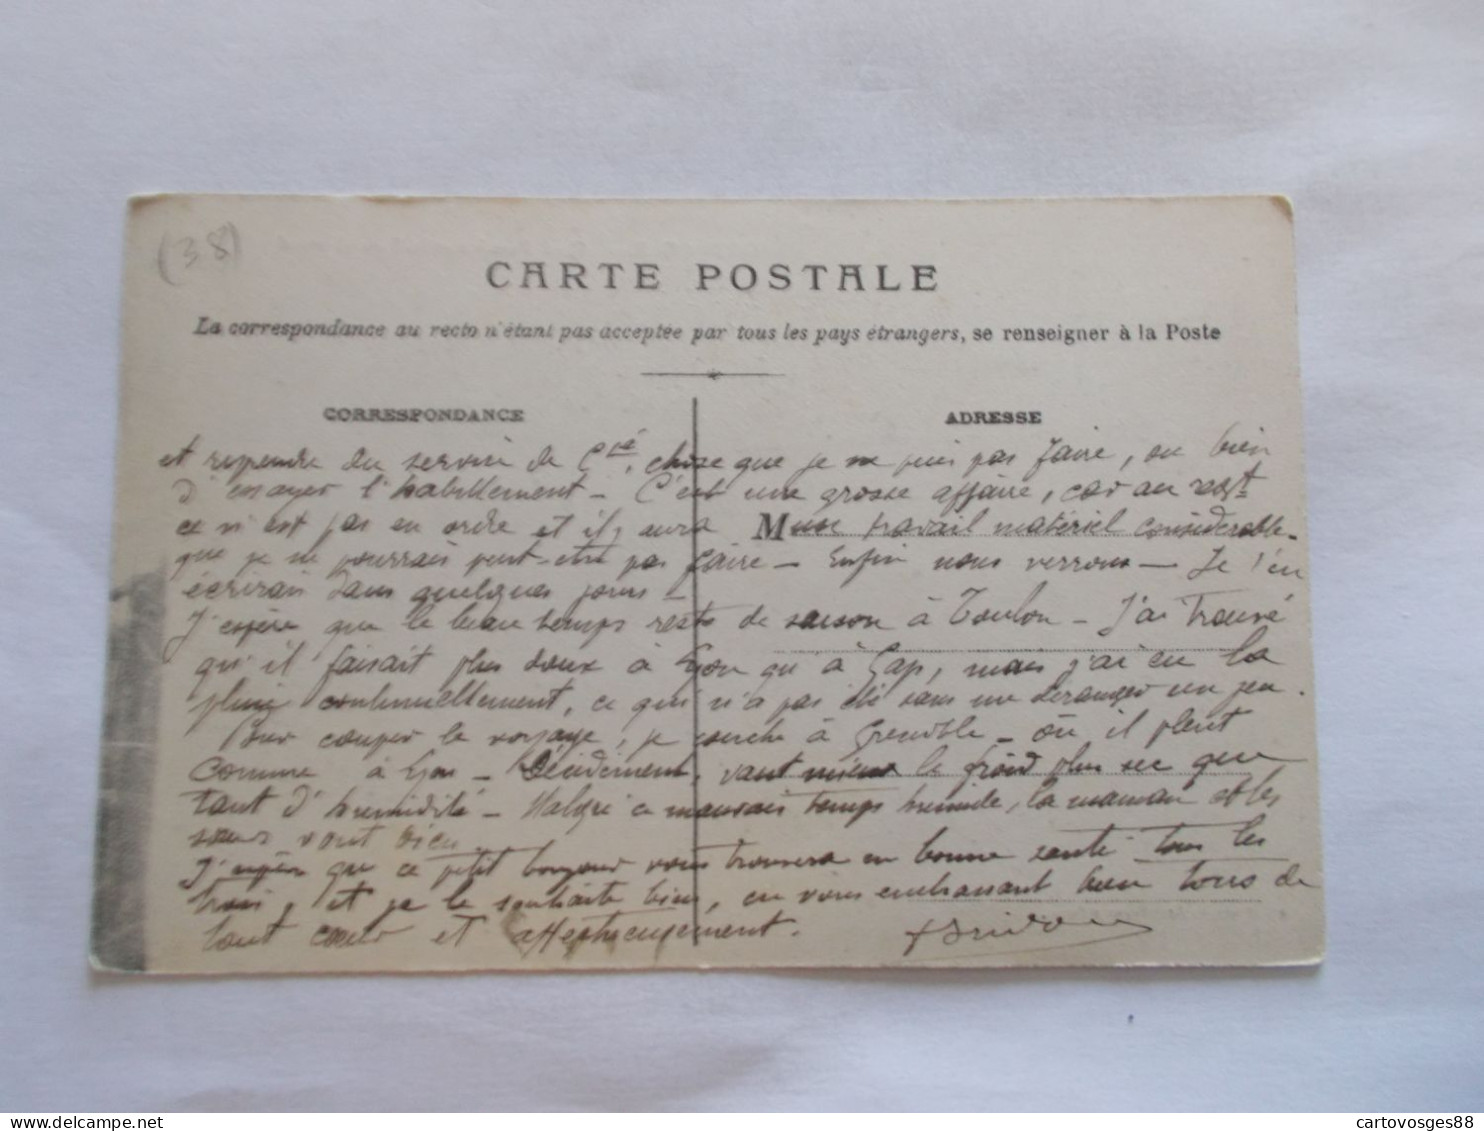 (38)
CARTE POSTALE
La correspondance au recto n'étant pas acceptée par tous les pays étrangers, se renseigner à la Poste
CORRESPONDANCE
ADRESSE
et reprendre du service de Cie, chose que je ne puis pas faire, ou bien
d'essayer l'habillement - C'est une grosse affaire, car au
ce n'est pas en ordre et il y aura M une travail matériel considérable -
que je ne pourrais peut-être pas faire - Enfin nous verrons - Je t'en
écrirai dans quelques jours -
J'espère que le beau temps reste de saison à Toulon - J'ai trouvé
qu'il faisait plus doux à Lyon qu'à Gap, mais j'ai eu la
pluie continuellement, ce qui n'a pas été sans me déranger un peu.
Pour couper le voyage, je couche à Grenoble - où il pleut
comme à Lyon - Décidément, vaut mieux le froid plus sec que
tant d'humidité - Malgré ce mauvais temps humide, la maman et les
sœurs vont bien
J'espère que ce petit bonjour vous trouvera en bonne santé tous les
trois, et je le souhaite bien, en vous embrassant bien tous de
tout cœur et affectueusement.
cartovosges88